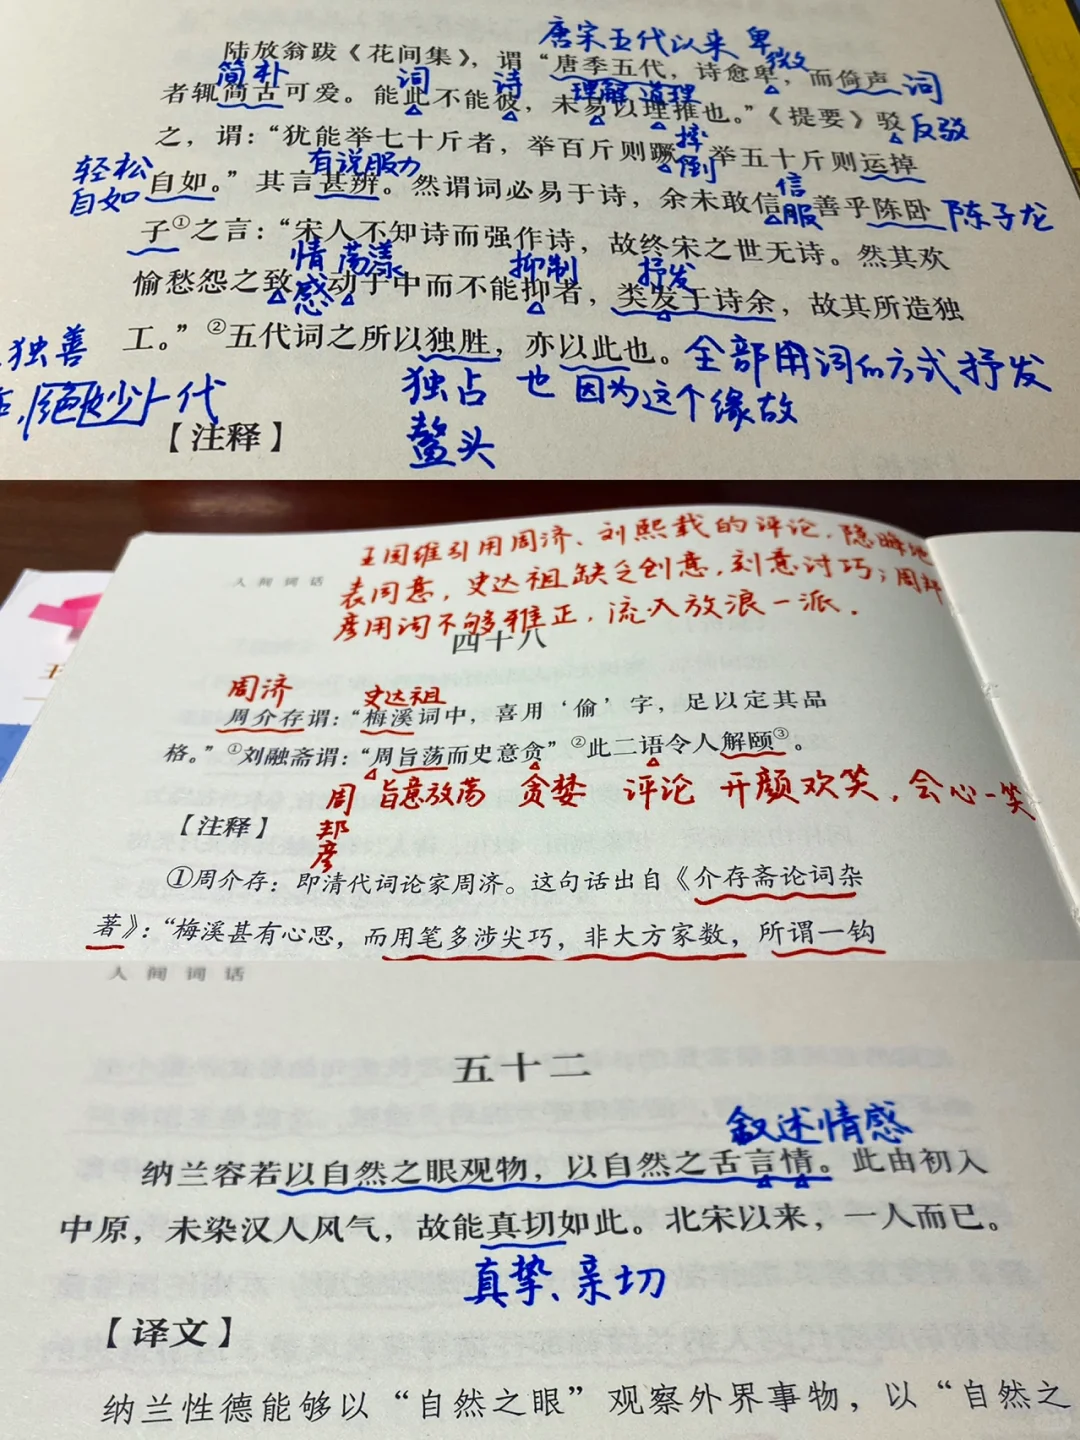 唐宋五代以来 卑微
陆放翁跋《花间集》，谓“唐季五代，诗愈卑，而倚声
简朴 词 诗 理解 道理 词
者辄简古可爱。能此不能彼，未易以理推也。”《提要》驳
反驳
之，谓：“犹能举七十斤者，举百斤则蹶，举五十斤则运掉
轻松自如 有说服力 摔倒
自如。”其言甚辨。然谓词必易于诗，余未敢信。善乎陈卧
信服 陈子龙
子①之言：“宋人不知诗而强作诗，故终宋之世无诗。然其欢
情感 荡漾 抑制 抒发
愉愁怨之致，动于中而不能抑者，类发于诗余，故其所造独
工。”②五代词之所以独胜，亦以此也。
全部用词的方式抒发
独善
绝妙一代
独占鳌头 也 因为这个缘故
【注释】
王国维引用周济、刘熙载的评论，隐晦地
表同意，史达祖缺乏创意，刻意讨巧；周邦
彦用词不够雅正，流入放浪一派.
人间词话
四十八
周济 史达祖
周介存谓：“梅溪词中，喜用‘偷’字，足以定其品
格。”①刘融斋谓：“周旨荡而史意贪”②此二语令人解颐③。
周邦彦 旨意放荡 贪婪 评论 开颜欢笑，会心一笑
【注释】
①周介存：即清代词论家周济。这句话出自《介存斋论词杂
著》：“梅溪甚有心思，而用笔多涉尖巧，非大方家数，所谓一钩
人间词话
五十二
叙述情感
纳兰容若以自然之眼观物，以自然之舌言情。此由初入
中原，未染汉人风气，故能真切如此。北宋以来，一人而已。
真挚、亲切
【译文】
纳兰性德能够以“自然之眼”观察外界事物，以“自然之